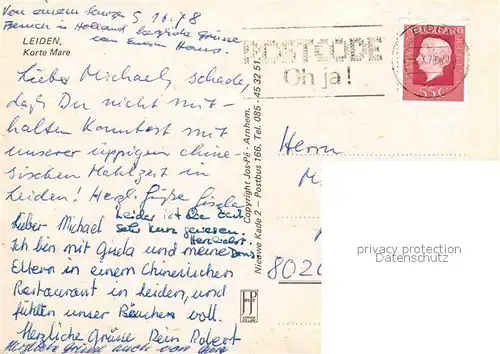 Von einem kurzen 5.11.78
Besuch in Holland herzliche Grüsse
von Eurem Hans.
LEIDEN,
Korte Mare
Lieber Michael, schade,
daß Du nicht mit-
halten konntest mit
unserer üppigen chine-
sischen Mahlzeit in
Leiden! Herzl. Grüße Gisela
Lieber Michael
Ich bin mit Gisela und meinen
Eltern in einem Chinesischen
Restaurant in Leiden, und
füllten unser Bäuchen voll.
Herzliche Grüsse Dein Robert
Herzliche Grüsse auch von
Leider ist die Zeit
sehr kurz gewesen.
Herzlichst
Copyright Jos-Pé - Arnhem.
Nieuwe Kade 2 – Postbus 166. Tel. 085 - 45 32 51.
POSTCODE
Oh ja!
NEDERLAND
55 c
Herrn
M
802
privacy protection
Datenschutz